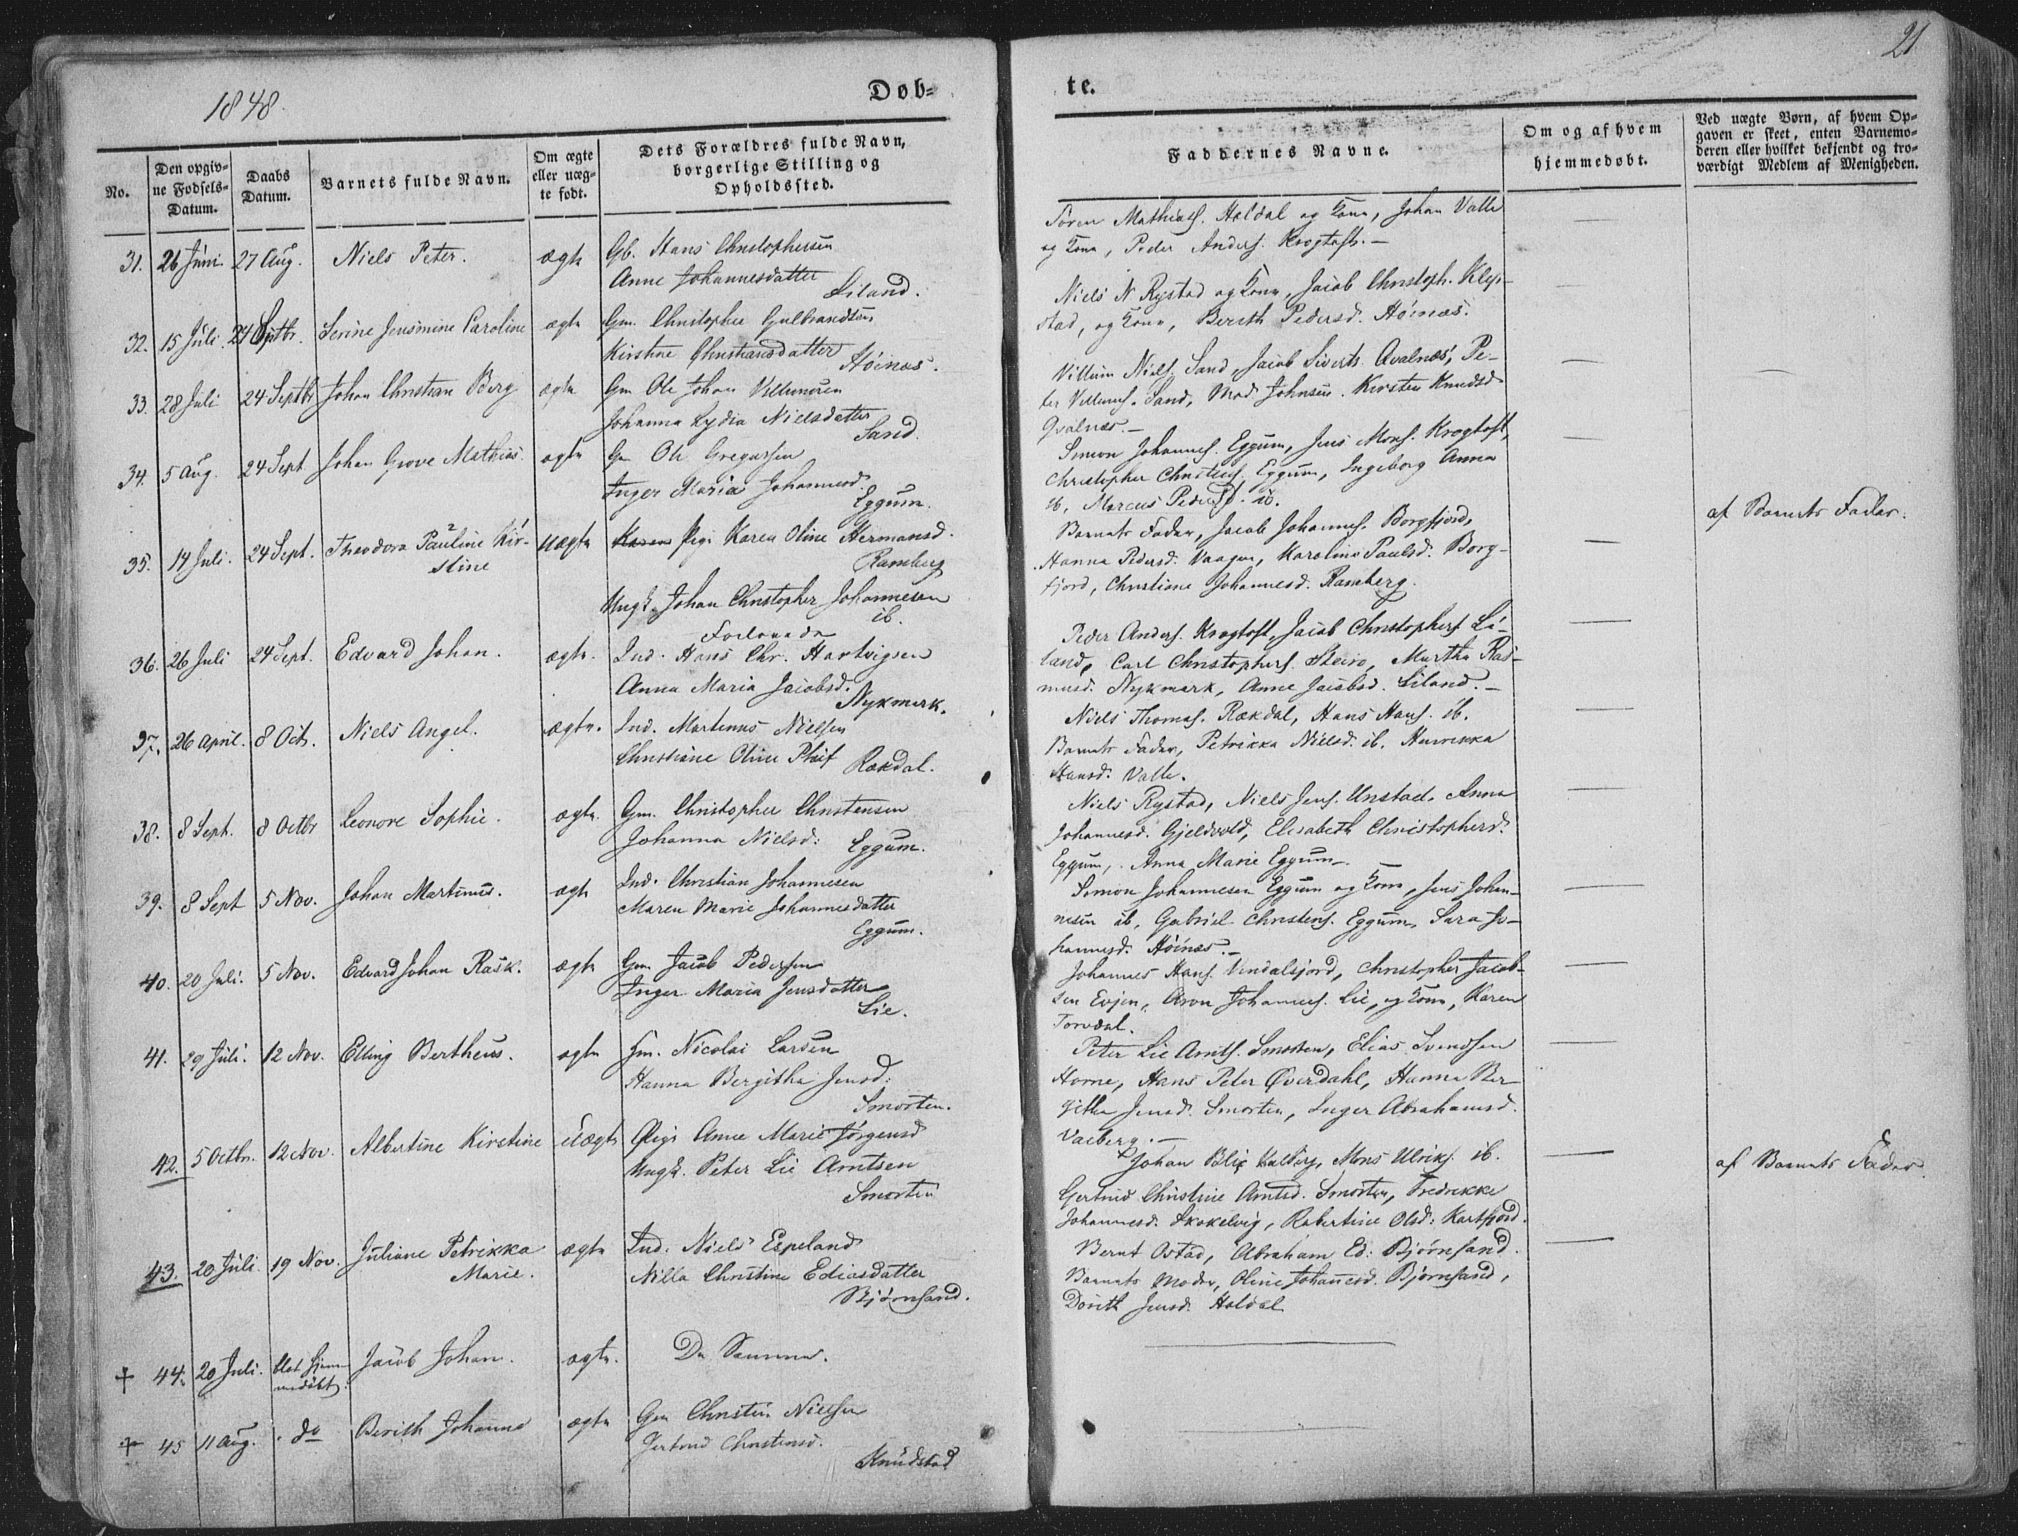 1848.
Døb-
No.
Den opgiv-
ne Fødsels-
Datum.
Daabs
Datum.
Barnets fulde Navn.
Om ægte
eller uæg-
te født.
Dets Forældres fulde Navn,
borgerlige Stilling og
Opholdssted.
31. 26 Juni. 27 Aug. Niels Peter. ægte Gb. Hans Christophersen
Anne Johannesdatter
Liland.
32. 15 Juli. 24 Septbr. Serine Jensmine Caroline ægte Gm. Christopher Gulbrandsen
Kirstine Christiansdatter
Høinæs.
33. 28 Juli 24 Septbr Johan Christian Borg ægte Gm Ole Johan Villumsen
Johanna Lydia Nielsdatter
Sand.
34. 5 Aug. 24 Sept Johan Grove Mathias. ægte Gm Ole Gregersen
Inger Maria Johannesd.
Eggum.
35. 14 Juli. 24 Sept. Theodora Pauline Kir-
stine
uægte Pige Karen Oline Hermansd.
Ramberg
Ungk. Johan Christopher Johannesen
ib.
Forlovede
36. 26 Juli 24 Sept. Edvard Johan. ægte. Ind. Hans Chr. Hartvigsen
Anna Maria Jacobsd.
Nykmark.
37. 26 April. 8 Oct. Niels Angel. ægte. Ind. Martinus Nielsen
Christiane Oline Phif
Rækdal.
38. 8 Sept. 8 Octbr Leonore Sophie. ægte. Gm. Christopher Christensen
Johanna Nielsd: Eggum.
39. 8 Sept 5 Nov. Johan Martinus. ægte Ind. Christian Johannesen
Maren Marie Johannesdatter
Eggum.
40. 20 Juli. 5 Nov. Edvard Johan Rask. ægte Gm. Jacob Pedersen
Inger Maria Jensdatter
Lie.
41. 29 Juli. 12 Nov. Elling Bertheus. ægte Hm. Nicolai Larsen
Hanna Bergitha Jensd:
Smorten.
42. 5 Octbr. 12 Nov. Albertine Kirstine Uægte Pige Anne Marie Jørgensd
Ungk. Peter Lie Arntsen
Smorten
43. 20 Juli. 19 Nov. Juliane Petrikka
Marie.
ægte Ind. Niels Espeland
Nilla Christine Ediasdatter
Bjørnsand.
✝ 44. 20 Juli. blot hjem-
medøbt.
Jacob Johan. ægte. De Samme.
✝ 45 11 Aug. do Berith Johanna ægte Gm Christen Nielsen
Gertrud Christensd.
Knudstad
21
te.
Faddernes Navne.
Om og af hvem
hjemmedøbt.
Ved uægte Børn, af hvem Op-
gaven er skeet, enten Barnemo-
deren eller hvilket bekjendt og tro-
værdigt Medlem af Menigheden.
Søren Mathias. Holdal og Kone, Johan Valle
og Kone, Peder Anders. Krogtoft. -
Niels N Rystad og Kone, Jacob Christoph. Klep-
stad, og Kone, Berith Pedersd. Høinæs.
Villum Niels. Sand, Jacob Siverts Qvalnæs, Pe-
ter Villums. Sand, Mad Johnsen. Kirsten Knudsd
Qvalnæs. -
Simon Johannes. Eggum, Jens Mons. Krogtoft,
Christopher Christens. Eggum, Ingeborg Anna
ib, Marcus Peders. ib.
Barnets Fader, Jacob Johannes. Borgfjord,
Hanna Pedersd. Vaagen, Karoline Paulsd. Borg-
fjord, Christiane Johannesd. Ramberg.
af Barnets Fader.
Peder Anders. Krogtoft, Jacob Christophers. Li-
land, Carl Christophers. Steiro, Martha Ras-
musd. Nykmark, Anne Jacobsd. Liland. -
Niels Thomas. Rækdal, Hans Hans. ib.
Barnets Fader, Petrikka Nielsd. ib. Henrikka
Hansd. Valle.
Niels Rystad, Niels Jens. Unstad. Anna
Johannesd. Gjeldvold, Elisabeth Christophersd.
Eggum, Anna Marie Eggum. -
Simon Johannesen Eggum og Kone, Jens Johan-
nesen ib, Gabriel Christens. Eggum, Sara Jo-
hannesd. Høinæs. -
Johannes Hans. Vendalsjord, Christopher Jacob-
sen Evjen, Aron Johannes. Lie, og Kone, Karen
Torvdal.
Peter Lie Arnts. Smorten, Elias Svendsen
Horne, Hans Peter Øverdahl, Hanna Ber-
githa Jensd. Smorten, Inger Abrahamsd.
Valberg. -
Johan Blix Valberg, Mons Ulriks. ib.
Gertrud Christine Arntsd. Smorten, Fredrikke
Johannesd. Skokelvig, Robertine Olsd: Kartfjord.
af Barnets Fader
Bernt Ostad, Abraham Ed: Bjørnsand.
Barnets Moder, Oline Johannesd. Bjørnsand,
Dorith Jensd. Holdal